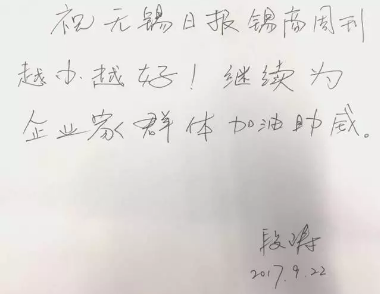 祝无锡日报锡商周刊
越办越好！继续为
企业家群体加油助威。
段涛
2017.9.22